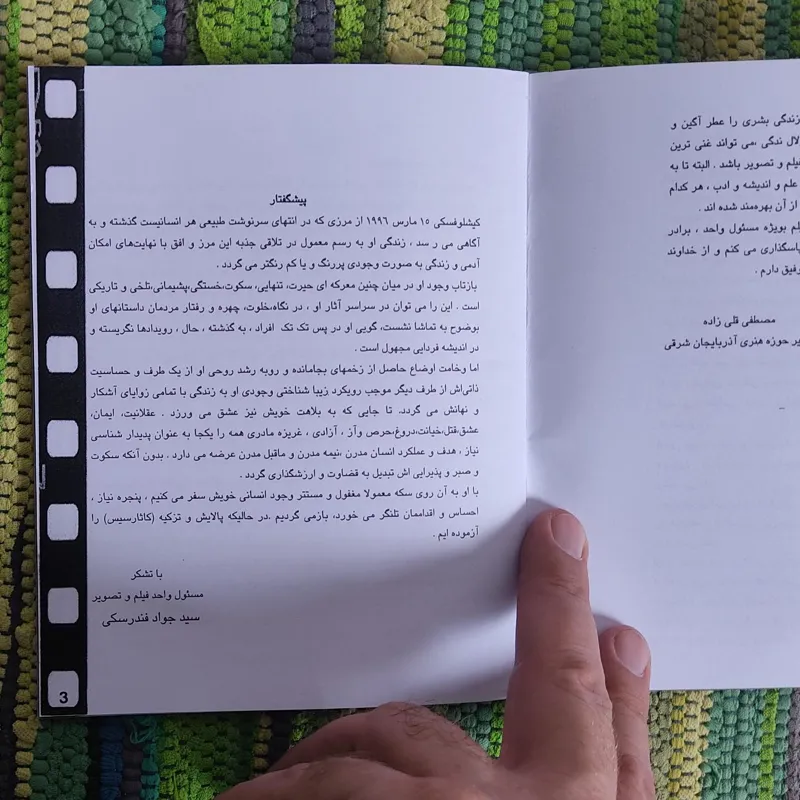 زندگی بشری را عطر آگین و
لال ندگی ،می تواند غنی ترین
فیلم و تصویر باشد . البته تا به
علم و اندیشه و ادب ، هر کدام
از آن بهره‌مند شده اند .
لم بویژه مسئول واحد ، برادر
پاسگذاری می کنم و از خداوند
وفیق دارم .
مصطفی قلی زاده
یر حوزه هنری آذربایجان شرقی
پیشگفتار
کیشلوفسکی ۱۵ مارس ۱۹۹۶ از مرزی که در انتهای سرنوشت طبیعی هر انسانیست گذشته و به
آگاهی می ر سد ، زندگی او به رسم معمول در تلاقی جذبه این مرز و افق با نهایت‌های امکان
آدمی و زندگی به صورت وجودی پررنگ و یا کم رنگتر می گردد .
بازتاب وجود او در میان چنین معرکه ای حیرت، تنهایی، سکوت،خستگی،پشیمانی،تلخی و تاریکی
است . این را می توان در سراسر آثار او ، در نگاه،خلوت، چهره و رفتار مردمان داستانهای او
بوضوح به تماشا نشست، گویی او در پس تک تک افراد ، به گذشته ، حال ، رویدادها نگریسته و
در اندیشه فردایی مجهول است .
اما وخامت اوضاع حاصل از زخمهای بجامانده و روبه رشد روحی او از یک طرف و حساسیت
ذاتی‌اش از طرف دیگر موجب رویکرد زیبا شناختی وجودی او به زندگی با تمامی زوایای آشکار
و نهانش می گردد. تا جایی که به بلاهت خویش نیز عشق می ورزد . عقلانیت، ایمان،
عشق،قتل،خیانت،دروغ،حرص وآز ، آزادی ، غریزه مادری همه را یکجا به عنوان پدیدار شناسی
نیاز ، هدف و عملکرد انسان مدرن ،نیمه مدرن و ماقبل مدرن عرضه می دارد . بدون آنکه سکوت
و صبر و پذیرایی اش تبدیل به قضاوت و ارزشگذاری گردد .
با او به آن روی سکه معمولا مغفول و مستتر وجود انسانی خویش سفر می کنیم ، پنجره نیاز ،
احساس و اقداممان تلنگر می خورد، بازمی گردیم .در حالیکه پالایش و تزکیه (کاتارسیس) را
آزموده ایم .
با تشکر
مسئول واحد فیلم و تصویر
سید جواد فندرسکی
3